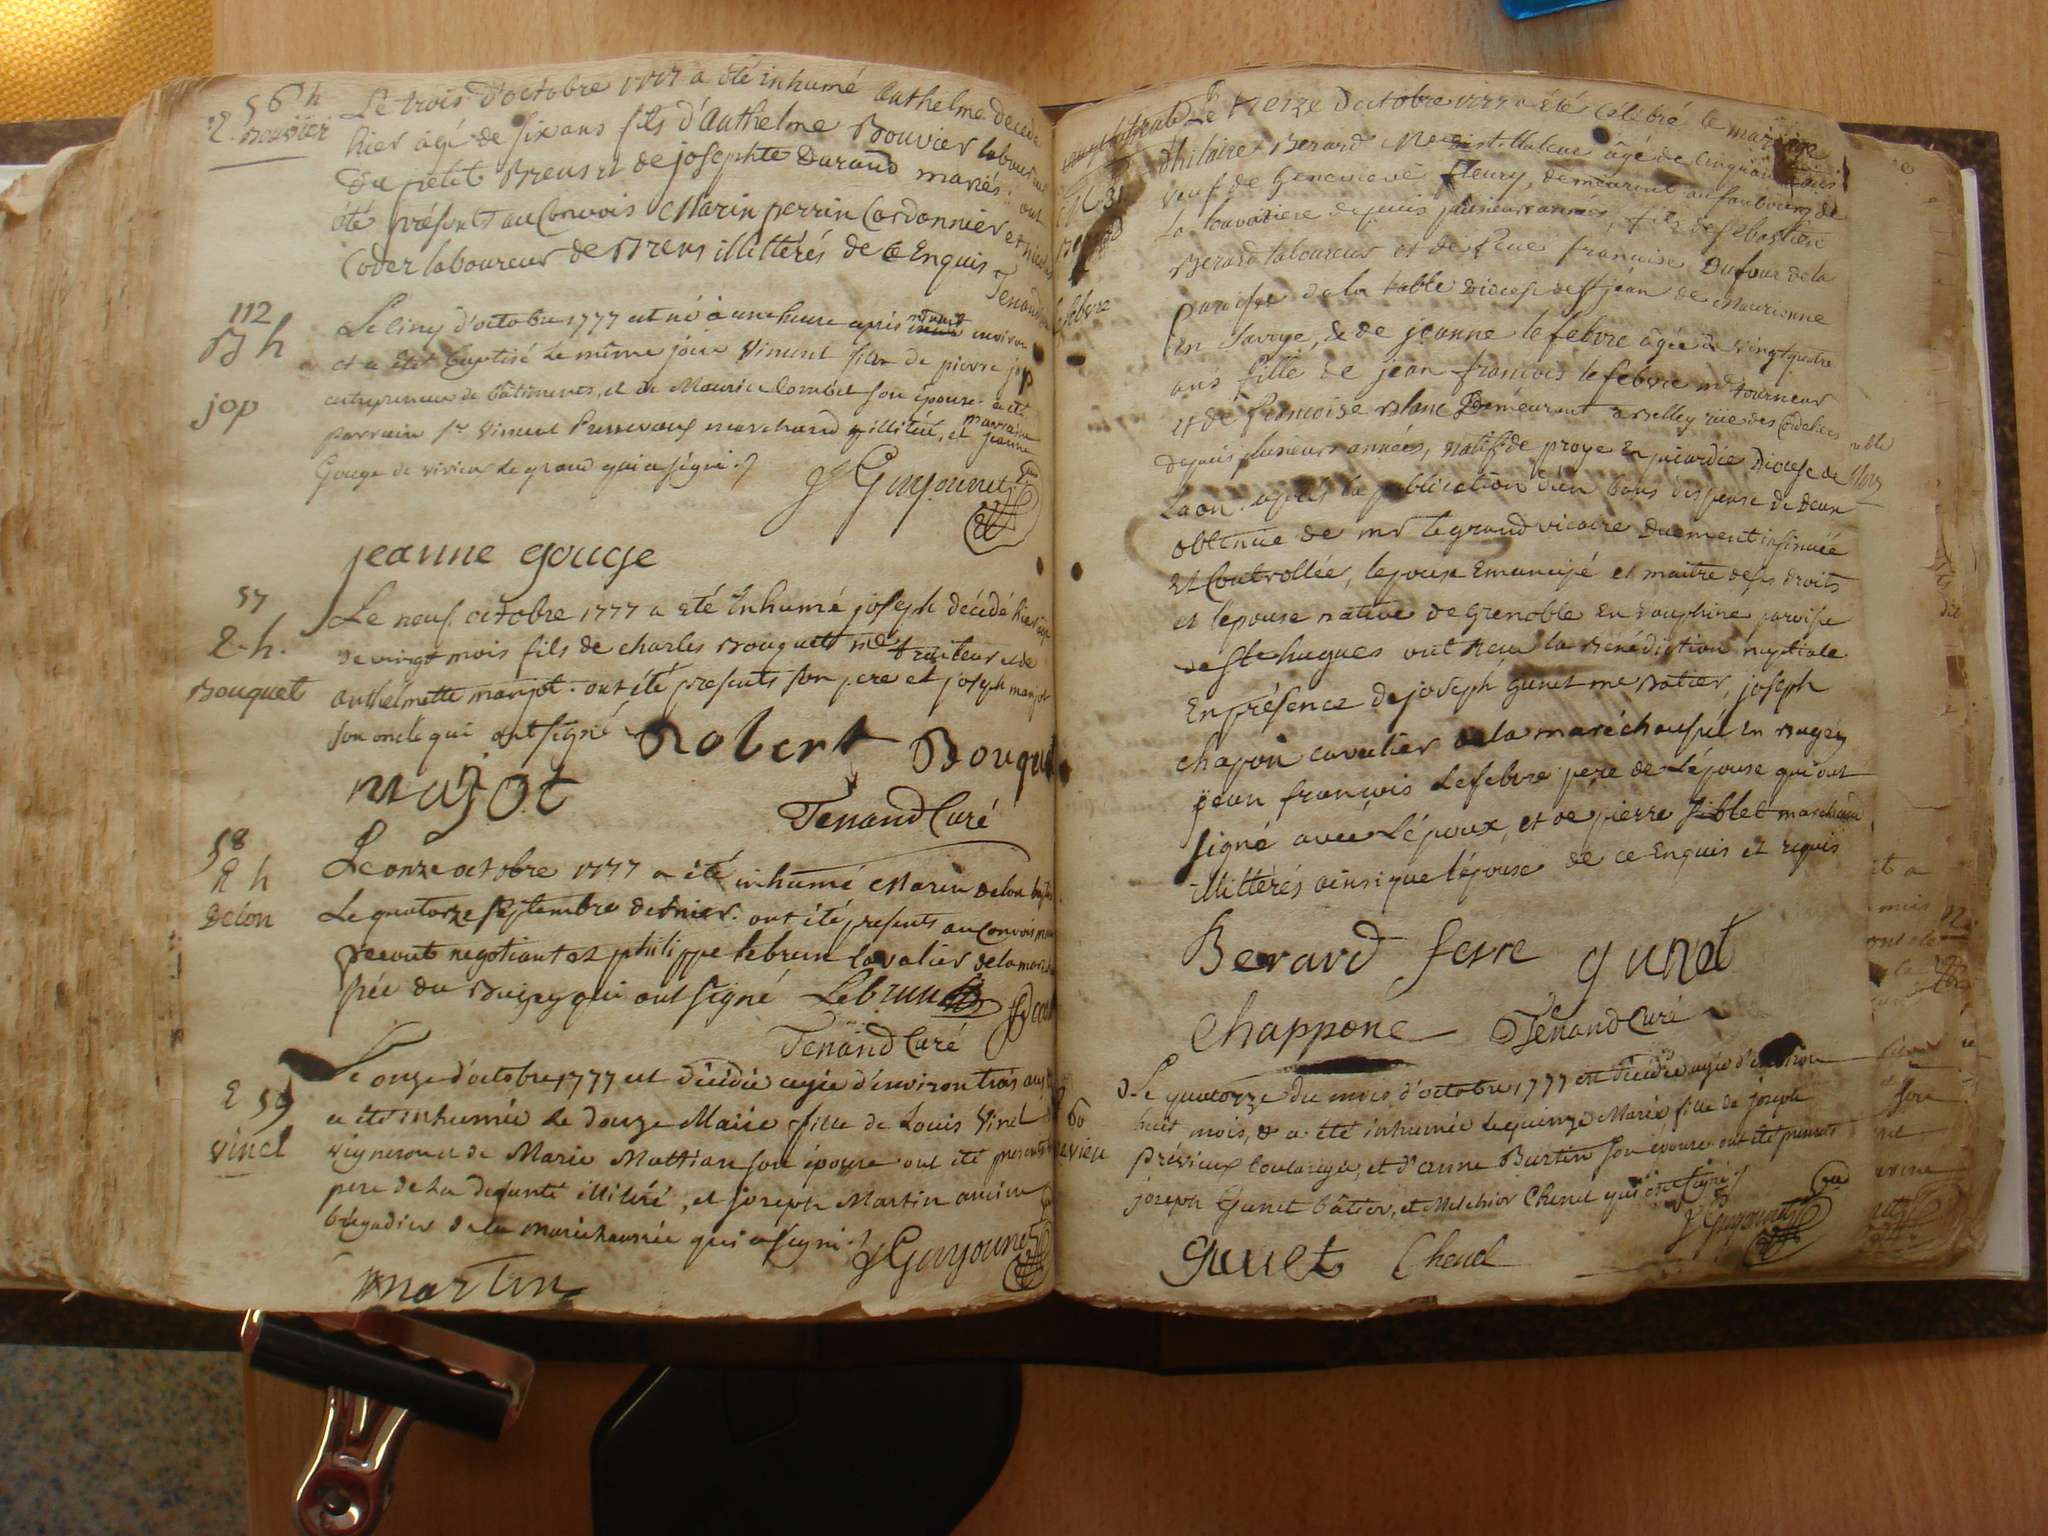 56 h
Bouvier
Le trois d'octobre 1777 a été inhumé anthelme decedé
hier agé de six ans fils d'Anthelme Bouvier laboureur
du petit Brens et de josephte Durand mariés. ont
été présents au Convois Marin perrin Cordonnier et
Coder laboureur de Brens illittérés de ce Enquis
Tenand
112
B h
jop
Le cinq d'octobre 1777 est né à une heure après minuit environ
et a été baptisé le même jour Vincent fils de pierre jop
entrepreneur de bâtiments, et de Maurise son épouse. a été
parrain Sr Vincent marchand illitéré, et marraine jeanne
Gouge de virieu le grand qui a signé
Guyonnet
jeanne gouge
57
2. h.
Bouquet
Le neuf octobre 1777 a été Inhumé joseph décédé hier agé
de vingt mois fils de charles Bouquet md traiteur et de
anthelmette marjot. ont été presents son pere et joseph marjot
son oncle qui ont signé Robert Bouquet
majot
Tenand Curé
58
2 h
Delon
Le onze octobre 1777 a été inhumé Marin delon
Le quatorze septembre dernier. ont été presents au Convois
negotiant et philippe lebrun Cavalier de la
sée du Bugey qui ont signé Lebrun
Tenand Curé
2 59
Vinel
Le onze d'octobre 1777 est décédée agée d'environ trois ans
a été inhumée le douze Marie fille de Louis Vinel
vigneron et de Marie Mathian son épouse ont été presents
pere de la defunte illitéré, et joseph Martin ancien
brigadier de la maréchaussée qui a signé
Guyonnet
Martin
Le treize d'octobre 1777 a été Célébré le mariage
d'hilaire Berard Me distillateur agé de Cinquante
veuf de Genevieve fleury, demeurant au faubourg de
la louvatiere depuis plusieurs années, fils de sebastien
Berard laboureur et de feue françoise Dufour de la
paroisse de la table Diocese de St jean de Maurienne
En Savoye, & de jeanne lefebvre agée de vingt quatre
ans fille de jean françois lefebvre md tourneur
et de françoise Blanc demeurant a Belley rue des Cordeliers
depuis plusieurs années, natif de proye En picardie Diocese de
Laon. après la publication d'un bans dispense de deux
obtenue de mr le grand vicaire duement insinuée
et Controllée, lepoux Emancipé et maitre de ses droits
et lepouse native de Grenoble En Dauphine paroisse
de St hugues ont Receu la Bénédiction nuptiale
En présence de joseph Gunet me Batier, joseph
chapon cavalier de la maréchaussée En Bugey
jean françois Lefebvre pere de Lépouse qui ont
signé avec Lépoux, et de pierre marchand
illittérés ainsi que lépouse de ce Enquis et requis
Berard fevre gunet
Chappone Tenand Curé
60
Le quatorze du mois d'octobre 1777 est décédée agée d'environ
huit mois, & a été inhumée le quinze Marie fille de joseph
Previeux boulanger, et d'anne Burtin son épouse. ont été presents
joseph Gunet bâtier, et Melchior Chenel qui ont signé
Guyonnet
Gunet Chenel